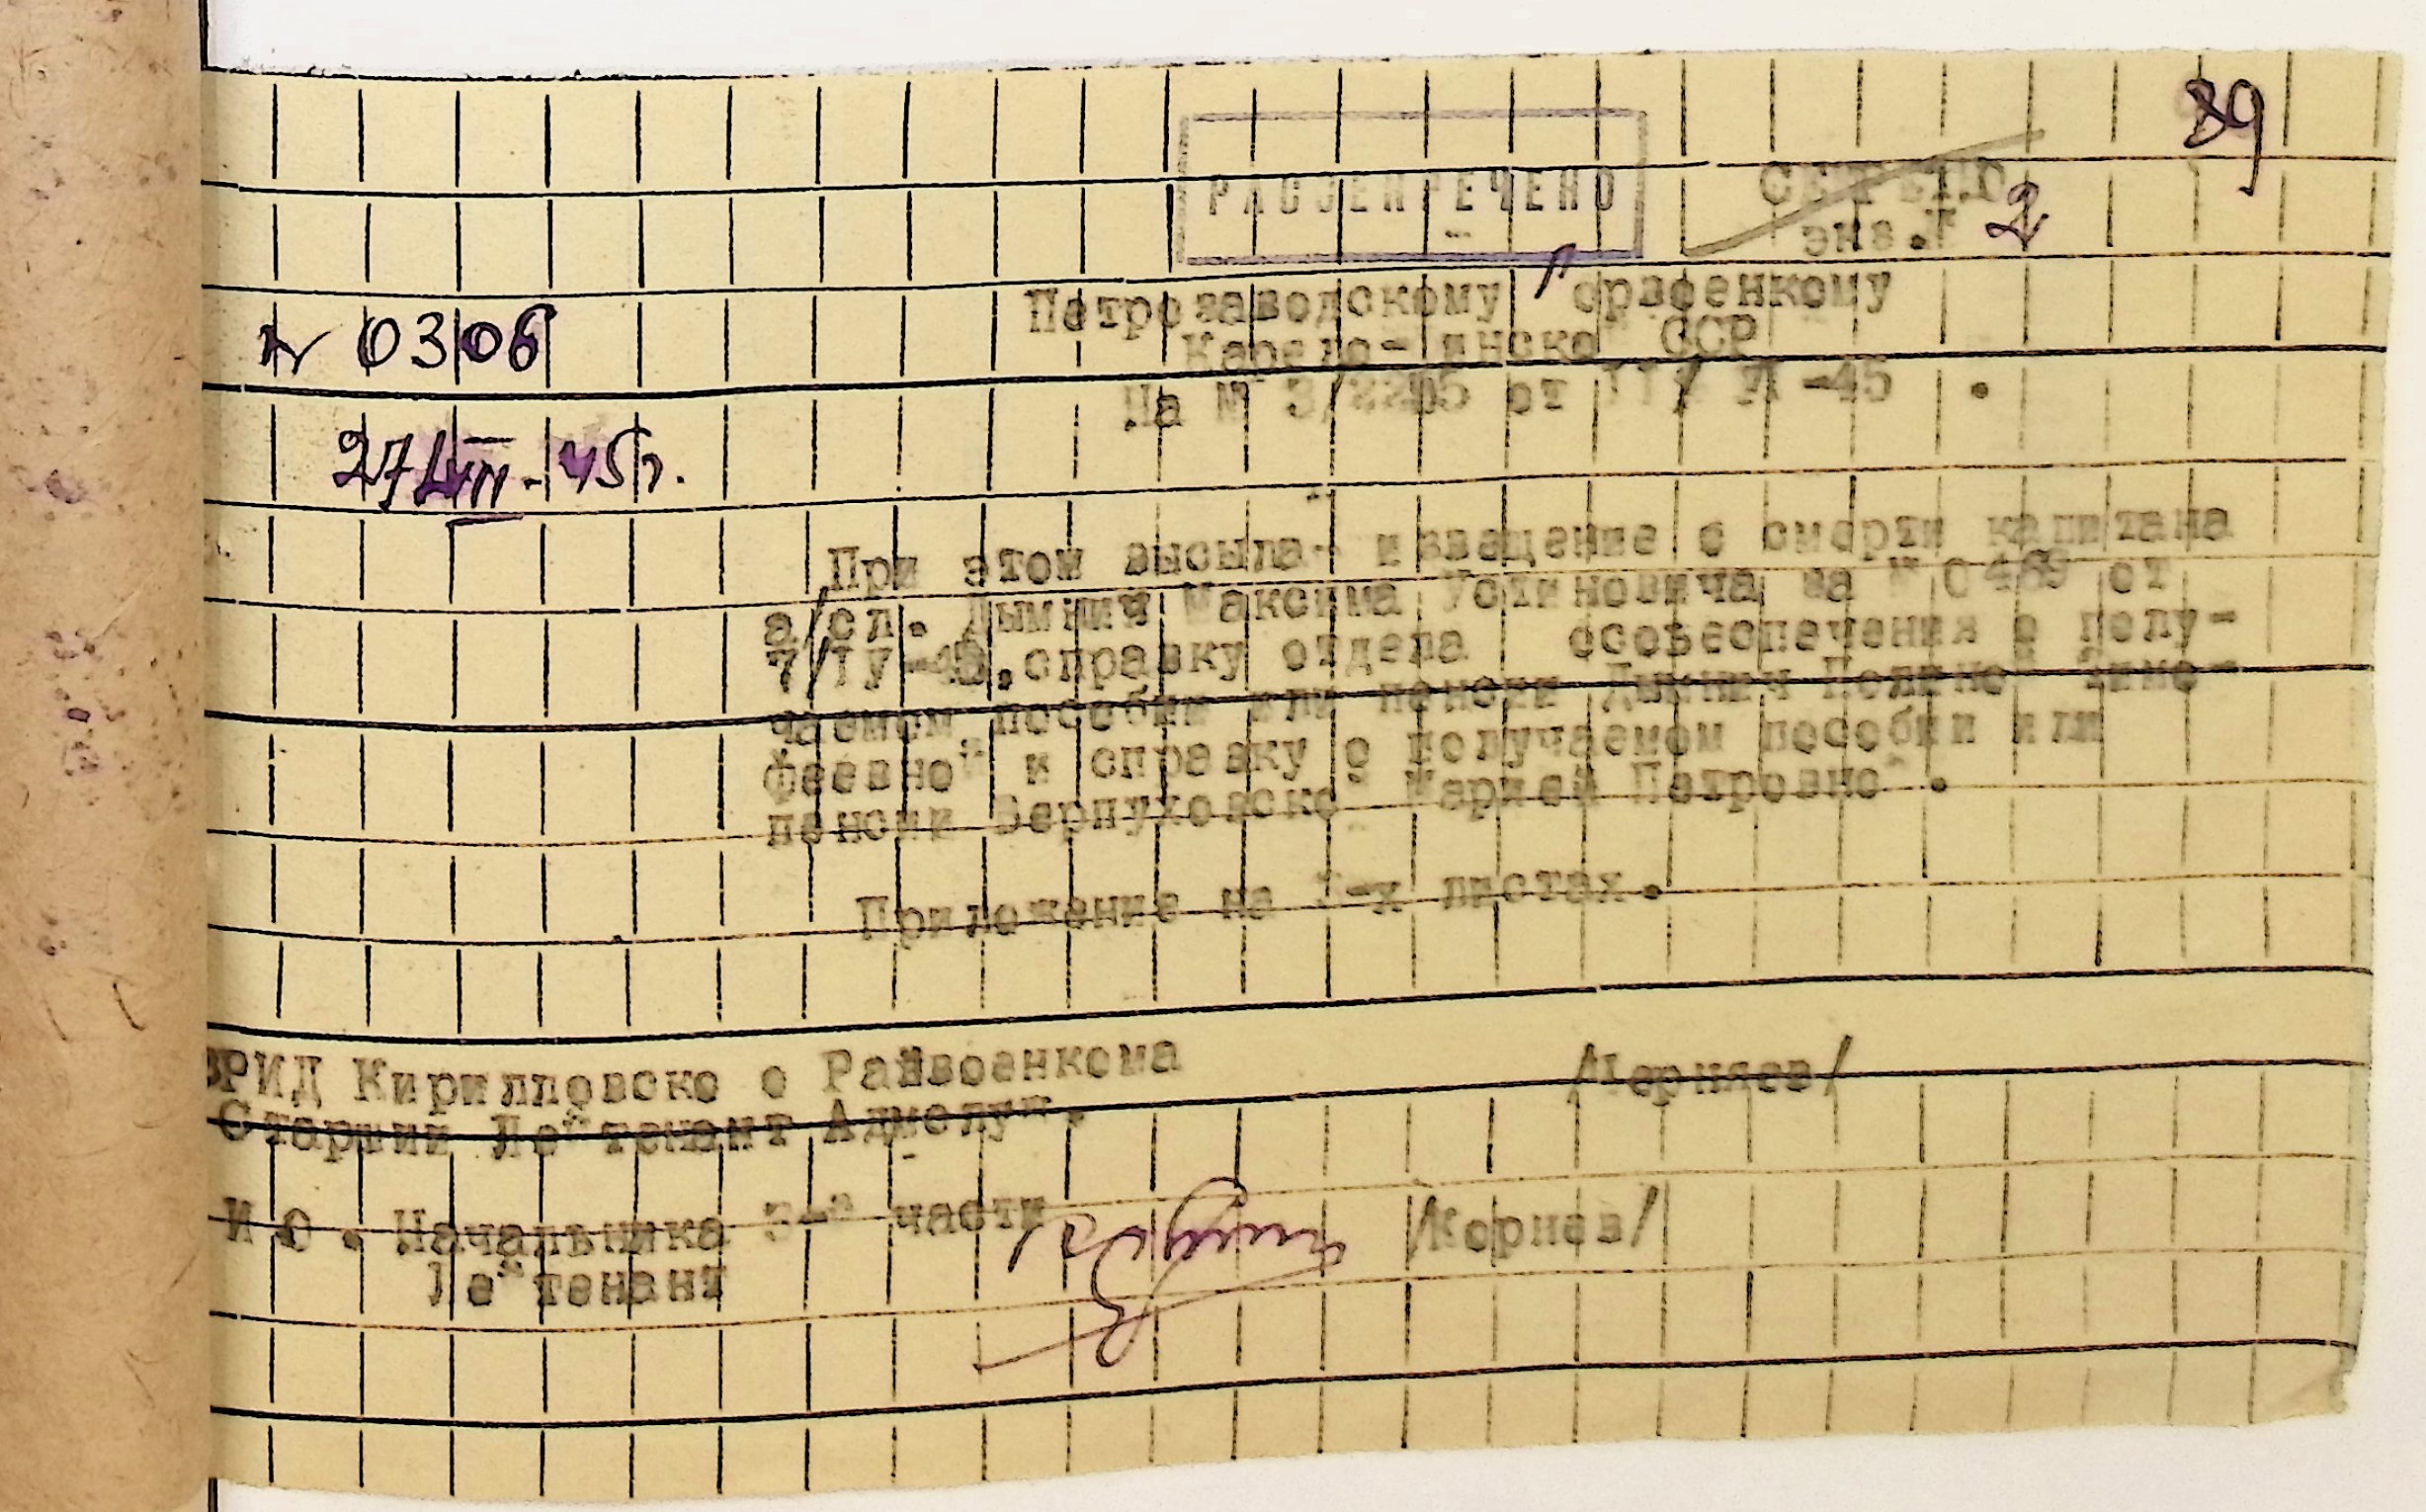 89
РАССЕКРЕЧЕНО
СЕКРЕТНО
экз. 2
Петрозаводскому Горвоенкому
№ 0306
Карело-Финской ССР
На № 3/2205 от -45 .
27 VII - 45 г.
При этом высыла- извещение о смерти капитана
а/сл. Дымнич Максима Устиновича за № 0469 от
7/IУ-45. справку отдела гособеспечения о полу-
чаемом пособии или пенсии Дымнич Полиной Тимо-
феевной и справку о получаемом пособии или
пенсии Верпуховской Марией Петровной .
Приложение на -х листах.
ВРИД Кирилловско о Райвоенкома
Старший Лейтенант Адмслуж. /Черняев/
И.О. Начальника 3-й части /Корнев/
Лейтенант